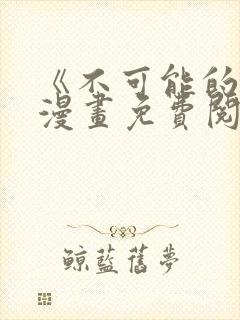 《不可能的
漫畫免費閱
鯨藍舊夢